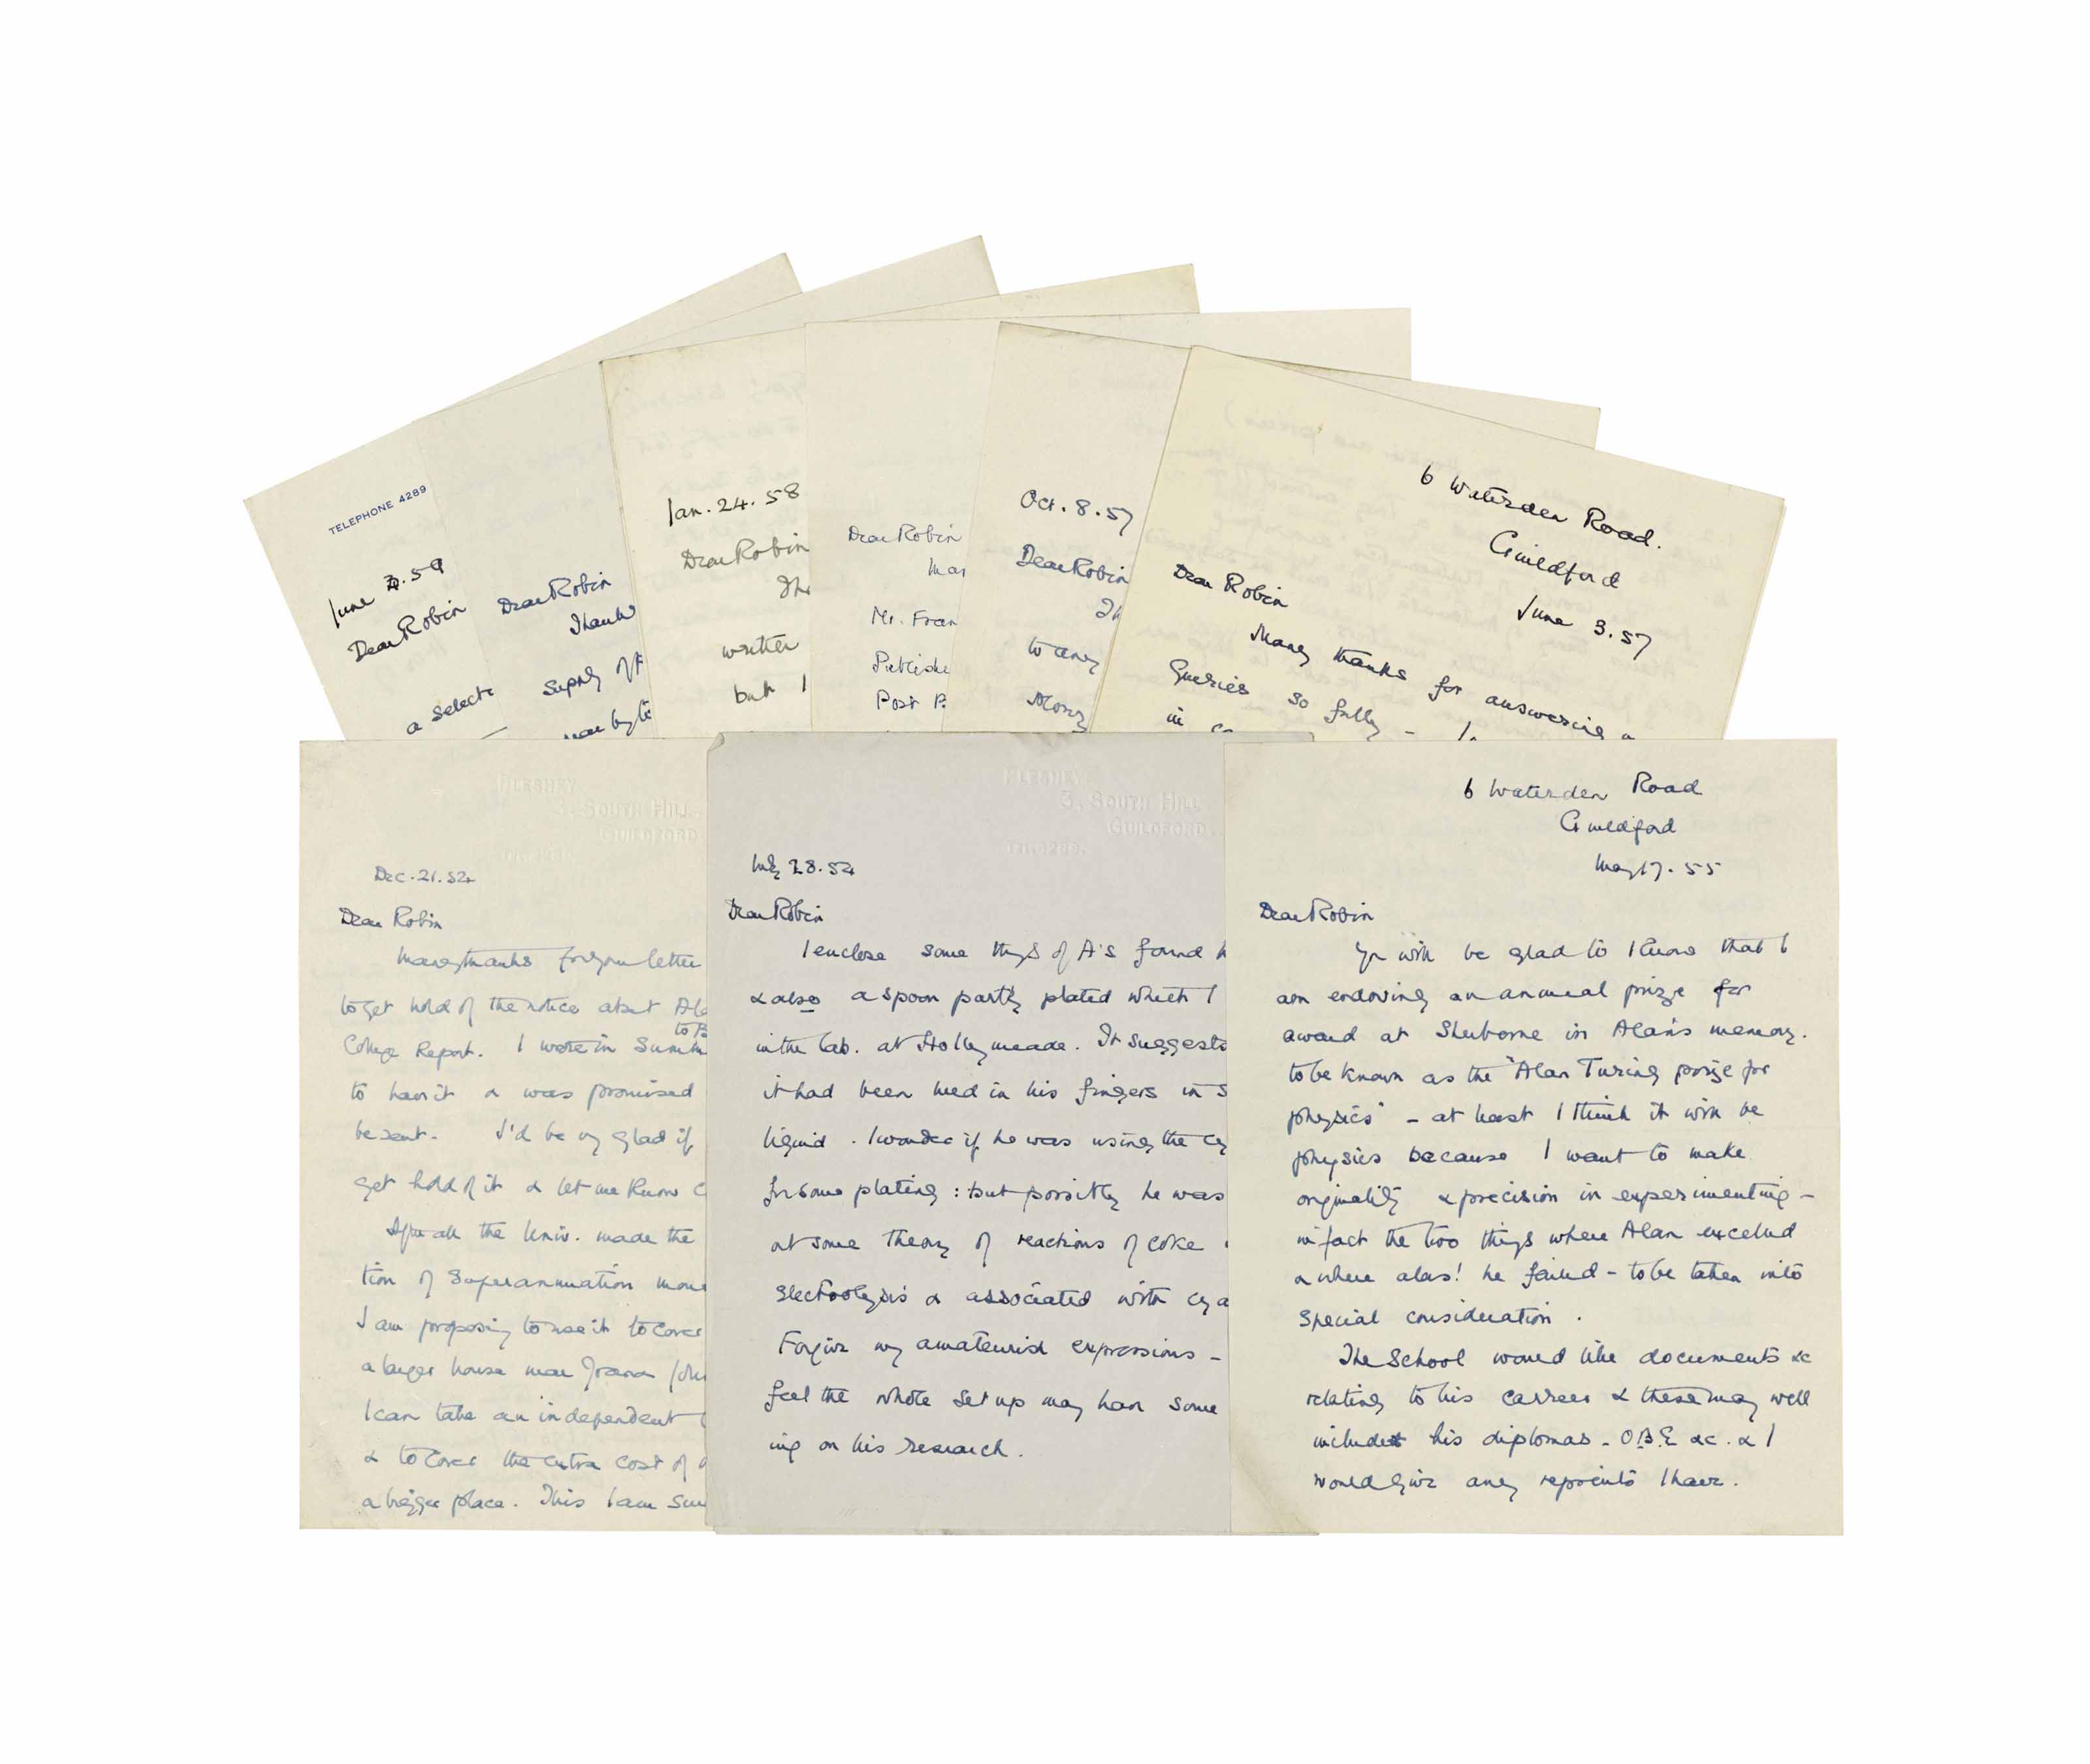 TELEPHONE 4289
June 2.59
Dear Robin
a select
Dear Robin
Thank
supply of
Jan. 24. 58
Dear Robin
The
written
but I
Dear Robin
Man
Mr. Fran
Publishe
Post P.
Oct. 8. 57
Dear Robin
Th
to
6 Waterden Road.
Guildford
June 3. 57
Dear Robin
Many thanks for answering
queries so fully - I
in
FLESHEY
3, SOUTH HILL,
GUILDFORD.
Dec. 21. 54
Dear Robin
Many thanks for your letter
to get hold of the notice about Al
College Report. I wrote in Summ
to have it & was promised
be sent. I'd be v. glad if
get hold of it & let me know
After all the Univ. made the
tion of Superannuation mone
I am proposing to use it to cover
a larger house near
I can take an independent
& to cover the extra cost of
a bigger place. This I am su
FLESHEY
3, SOUTH HILL
GUILDFORD.
July 28. 54
Dear Robin
I enclose some things of A's found
& also a spoon partly plated which I
in the lab. at Hollymeade. It suggests
it had been held in his fingers in s
liquid. I wonder if he was using the cy
for some plating: but possibly he was
at some theory of reactions of coke
electrolysis & associated with cya
Forgive my amateurish expressions -
feel the whole set up may have some
ing on his research.
6 Waterden Road
Guildford
May 17. 55
Dear Robin
You will be glad to know that I
am endowing an annual prize for
award at Sherborne in Alan's memory.
to be known as the "Alan Turing prize for
physics" - at least I think it will be
physics because I want to make
originality & precision in experimenting -
in fact the two things where Alan excelled
& where alas! he failed - to be taken into
special consideration.
The School would like documents &c
relating to his career & these may well
include his diplomas - O.B.E &c. & I
would give any reprints I have.